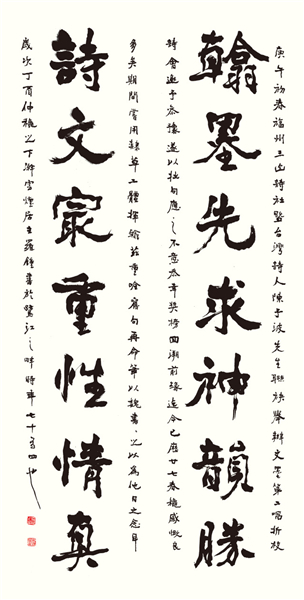 庚午初春福州三山詩社暨台灣詩人陳子波先生聯袂舉辦文墨第二唱折枝
翰墨先求神韻勝
詩會邀予参豫遂以拙句應之不意忝幸獎掖回溯前緣迄今已歷廿七春秋感慨良
多矣期間嘗用隸草二體揮翰茲重吟舊句再命筆以楷書之以為他日之念耳
詩文冣重性情真
歲次丁酉仲秋之下澣雲煙居主羅鍾書於鷺江之畔時年七十有四也